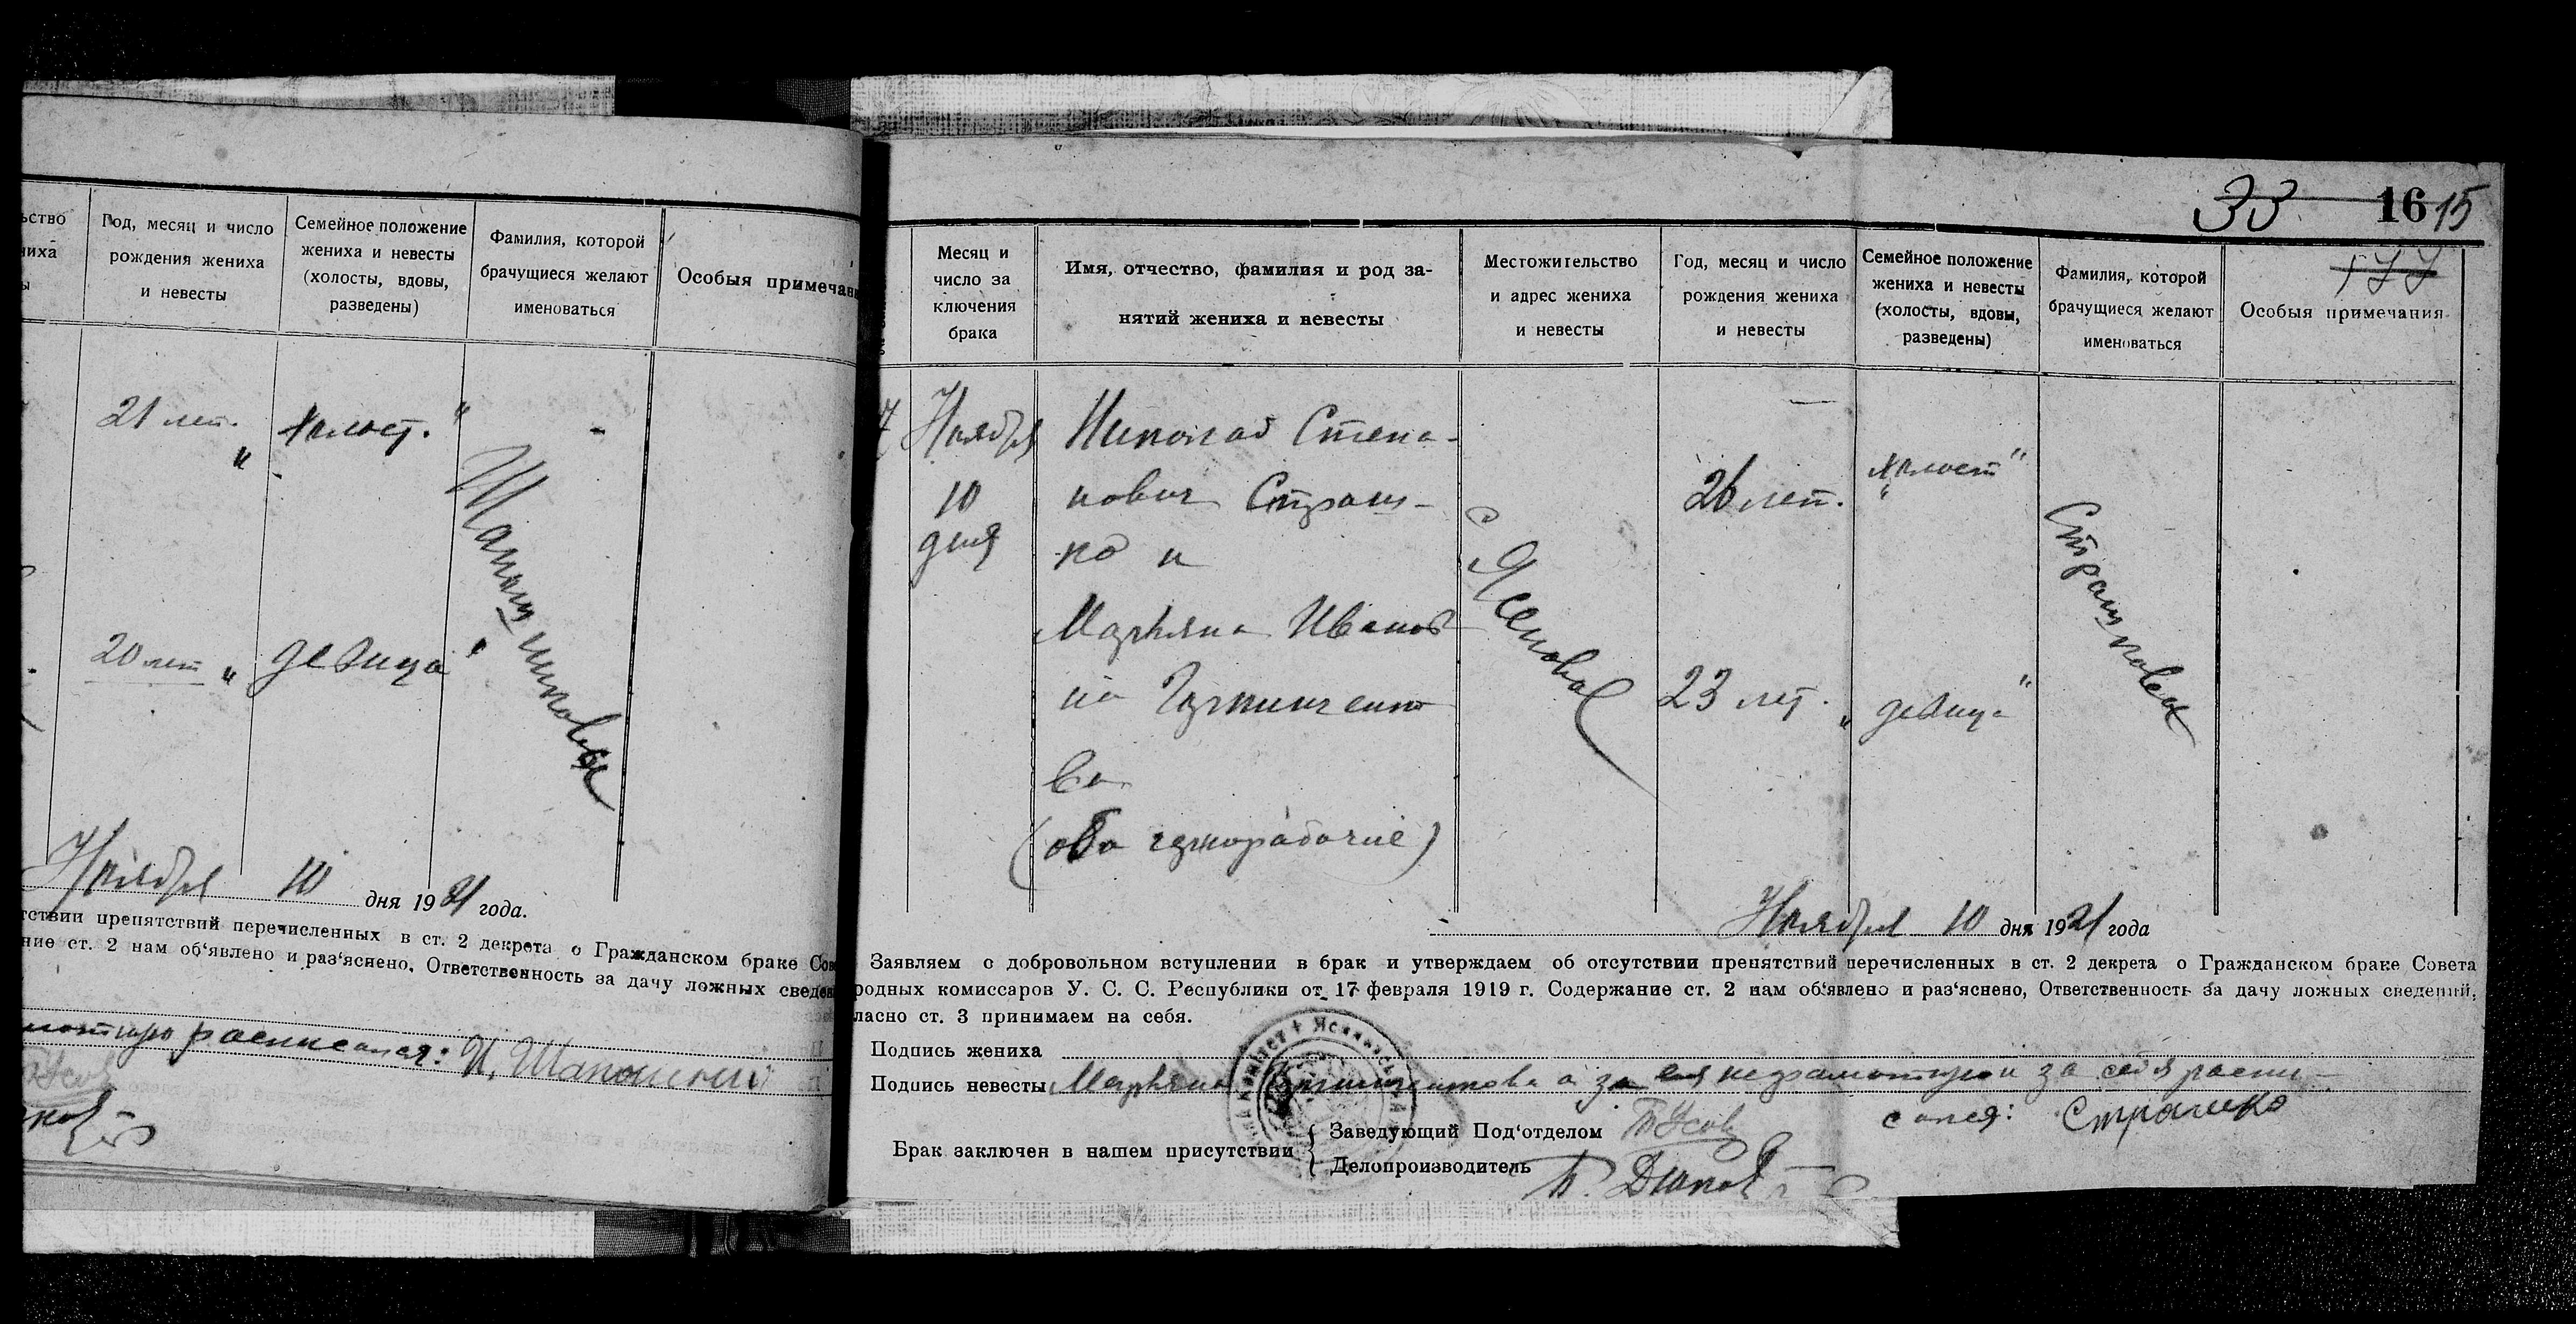 ьство
ниха
ы
Год, месяц и число
рождения жениха
и невесты
Семейное положение
жениха и невесты
(холосты, вдовы,
разведены)
Фамилия, которой
брачущиеся желают
именоваться
Особыя примечани
21 лет. "
холост. "
20 лет "
девица "
Ноября 10 дня 1921 года.
тствии препятствий перечисленных в ст. 2 декрета о Гражданском браке Сов
ние ст. 2 нам об‘явлено и раз‘яснено, Ответственность за дачу ложных сведен
расписался:
33 16 15
177
Месяц и
число за
ключения
брака
Имя, отчество, фамилия и род за-
нятий жениха и невесты
Местожительство
и адрес жениха
и невесты
Год, месяц и число
рождения жениха
и невесты
Семейное положение
жениха и невесты
(холосты, вдовы,
разведены)
Фамилия, которой
брачущиеся желают
именоваться
Особыя примечания
Ноября
10
дня
Николай Степа-
нович Страш-
ко и
Марьяна Иванов
на
ва
(оба чернорабочие)
26 лет.
холост "
23 лет. "
девица "
Ноября 10 дня 1921 года
Заявляем о добровольном вступлении в брак и утверждаем об отсутствии препятствий перечисленных в ст. 2 декрета о Гражданском браке Совета
родных комиссаров У. С. С. Республики от 17 февраля 1919 г. Содержание ст. 2 нам об‘явлено и раз‘яснено, Ответственность за дачу ложных сведений,
ласно ст. 3 принимаем на себя.
Подпись жениха
Подпись невесты Марьяна а за неграмотную и за себя распи-
сался: Страшко
Брак заключен в нашем присутствии
Заведующий Под‘отделом Усов
Делопроизводитель